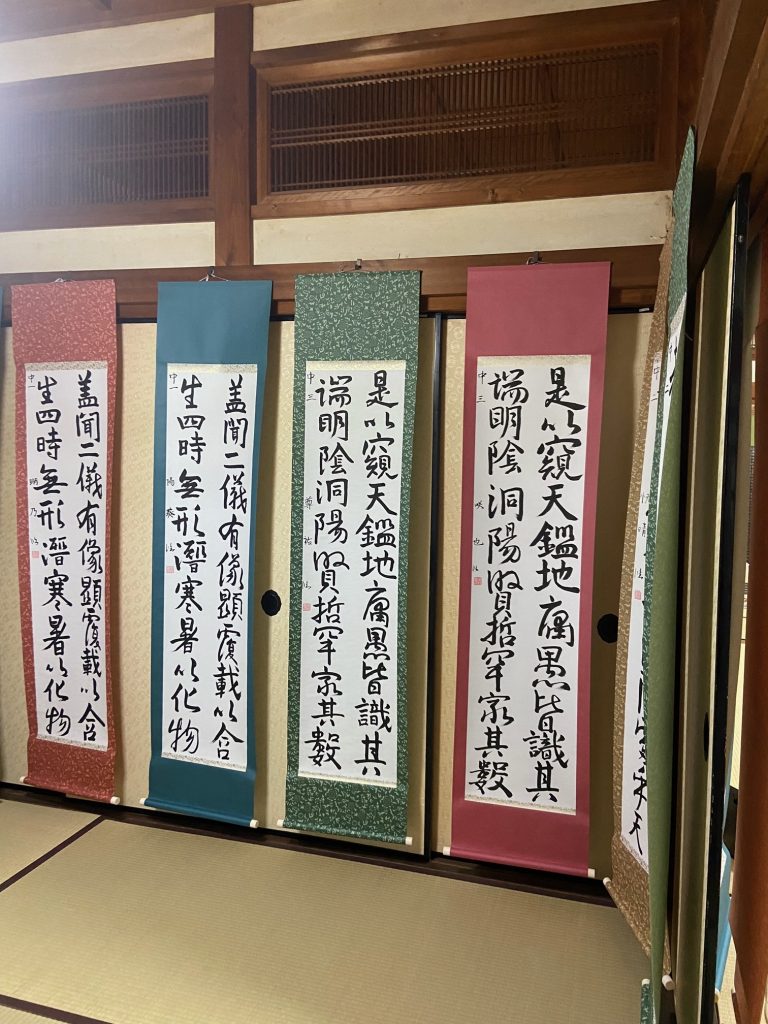 中二
是以窺天鑑地庸愚皆識其
端明陰洞陽賢哲罕窮其數
中三 咲也臨
是以窺天鑑地庸愚皆識其
端明陰洞陽賢哲罕窮其數
中三
盖聞二儀有像顯覆載以含
生四時無形潛寒暑以化物
中一 陽葵臨
盖聞二儀有像顯覆載以含
生四時無形潛寒暑以化物
中一 瑚乃臨